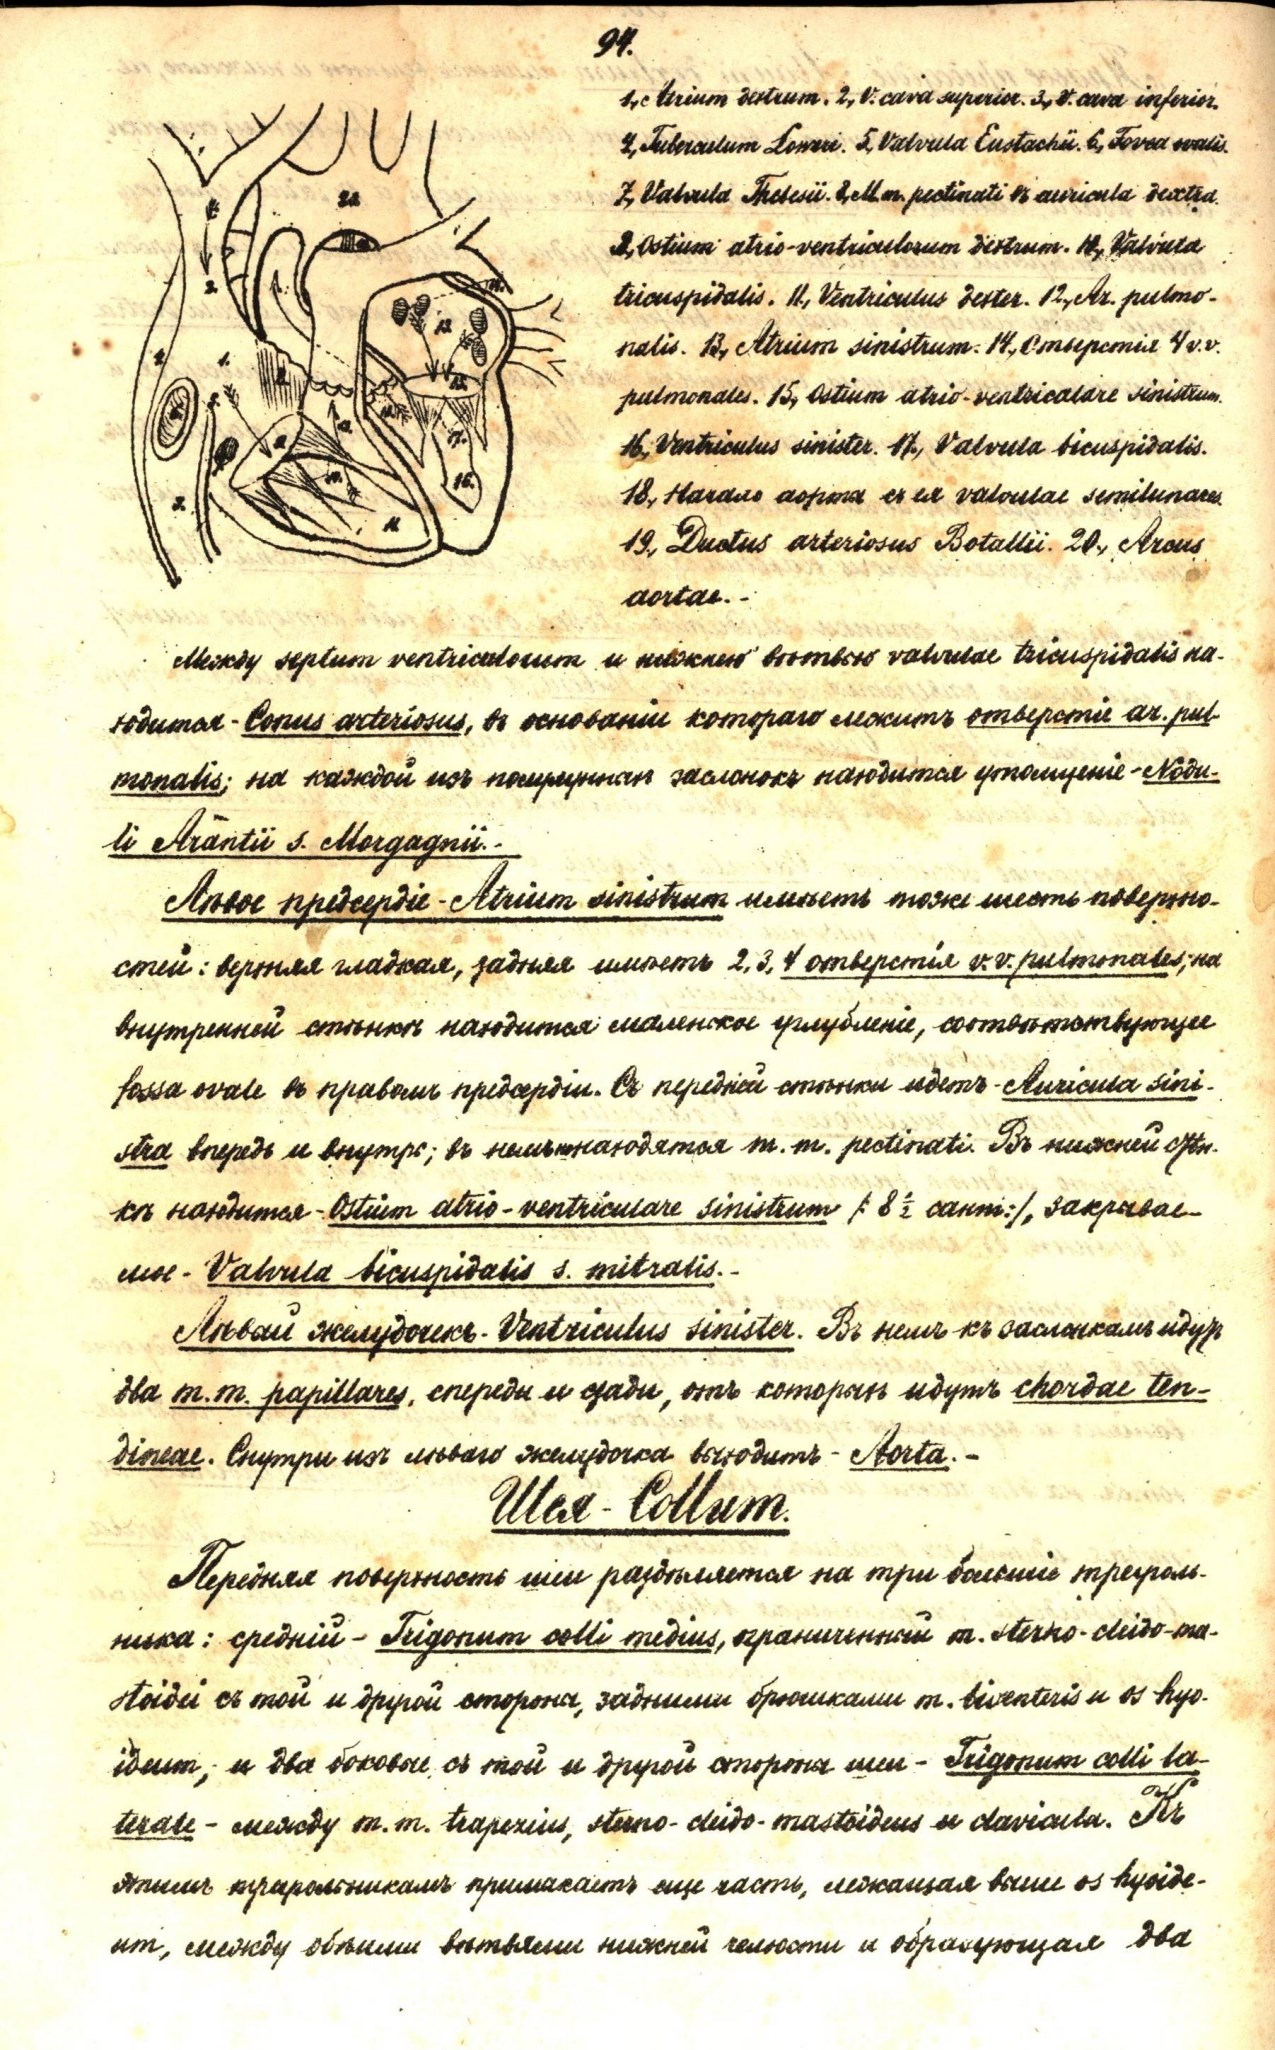 94.
1, Atrium dextrum. 2, V. cava superior. 3, V. cava inferior.
4, Tuberculum Loweri. 5, Valvula Eustachii. 6, Fovea ovalis.
7, Valvula Thebesii. 8, M.m. pectinati въ auricula dextra.
9, Ostium atrio-ventriculorum dextrum. 10, Valvula
tricuspidalis. 11, Ventriculus dexter. 12, Ar. pulmo-
nalis. 13, Atrium sinistrum. 14, Отверстiя 4 v.v.
pulmonales. 15, Ostium atrio-ventriculare sinistrum.
16, Ventriculus sinister. 17, Valvula bicuspidalis.
18, Начало аорты съ ея valvulae semilunares.
19, Ductus arteriosus Botallii. 20, Arcus
aortae. -
Между septum ventriculorum и нижнею вѣтвью valvulae tricuspidalis на-
ходится - Conus arteriosus, въ основанiи котораго лежитъ отверстiе ar. pul-
monalis; на каждой изъ полулунныхъ заслонокъ находится утолщенiе - Nodu-
li Arantii s. Morgagnii. -
Лѣвое предсердiе - Atrium sinistrum имѣетъ тоже шесть поверхно-
стей: верхняя гладкая, задняя имѣетъ 2, 3, 4 отверстiя v.v. pulmonales; на
внутренней стѣнкѣ находится маленькое углубленiе, соотвѣтствующее
fossa ovale въ правомъ предсердiи. Съ передней стѣнки идетъ - Auricula sini-
stra впередъ и внутрь; въ немъ находятся m.m. pectinati. Въ нижней стѣн-
кѣ находится - Ostium atrio-ventriculare sinistrum /: 8 ½ сант:/, закрывае-
мое - Valvula bicuspidalis s. mitralis. -
Лѣвый желудочекъ - Ventriculus sinister. Въ немъ къ заслонкамъ идутъ
два m.m. papillares, спереди и сзади, отъ которыхъ идутъ chordae ten-
dineae. Снутри изъ лѣваго желудочка выходитъ - Aorta. -
Шея - Collum.
Передняя поверхность шеи раздѣляется на три большiе треуголь-
ника: среднiй - Trigonum colli medius, ограниченный m. sterno-cleido-ma-
stoidei съ той и другой стороны, задними брюшками m. biventeris и os hyo-
ideum, и два боковые съ той и другой стороны шеи - Trigonum colli la-
terale - между m.m. trapezius, sterno-cleido-mastoideus и clavicula. Къ
этимъ треугольникамъ примыкаетъ еще часть, лежащая выше os hyoide-
um, между обѣими вѣтвями нижней челюсти и образующая два